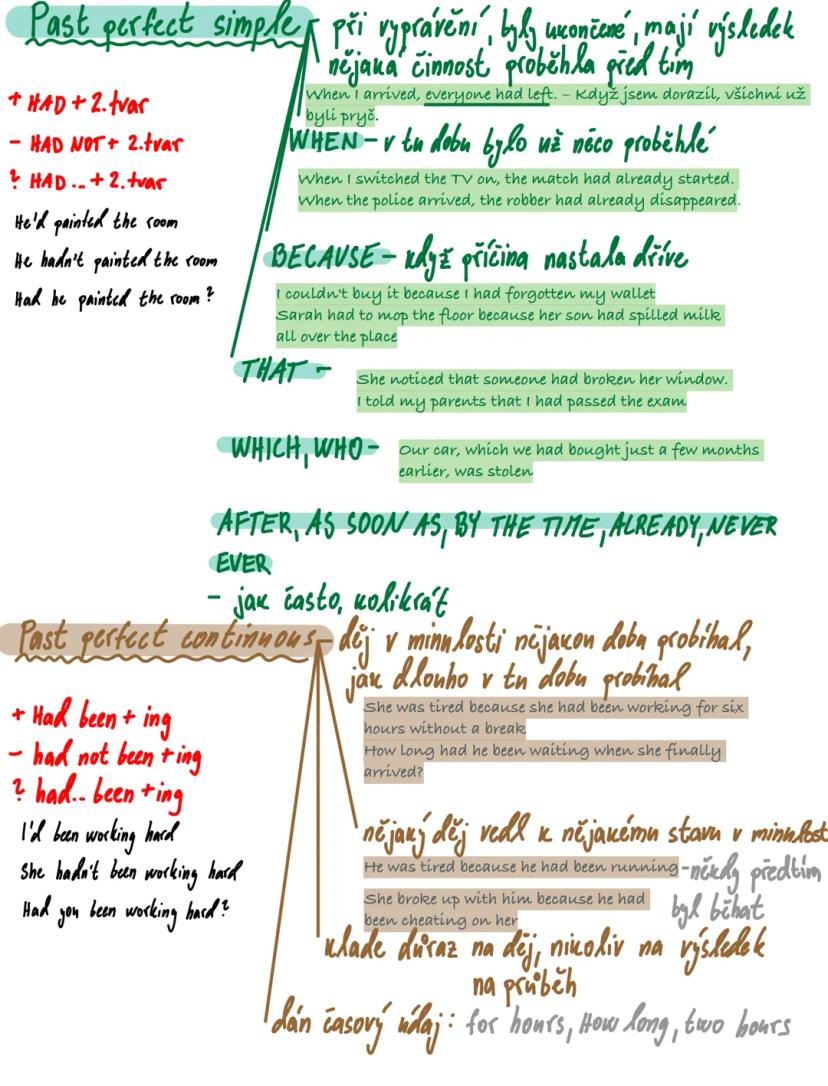 Past perfect simple – při vyprávění, byly ukončené, mají výsledek
nějaká činnost proběhla před tím
When I arrived, everyone had left. – Když jsem dorazil, všichni už
byli pryč.
+ HAD + 2.tvar
- HAD NOT + 2.tvar
? HAD ... + 2.tvar
He'd painted the room
He hadn't painted the room
Had he painted the room?
WHEN – v tu dobu bylo už něco proběhlé
When I switched the TV on, the match had already started.
When the police arrived, the robber had already disappeared.
BECAUSE – když příčina nastala dříve
I couldn't buy it because I had forgotten my wallet
Sarah had to mop the floor because her son had spilled milk
all over the place
THAT –
She noticed that someone had broken her window.
I told my parents that I had passed the exam
WHICH, WHO –
Our car, which we had bought just a few months
earlier, was stolen
AFTER, AS SOON AS, BY THE TIME, ALREADY, NEVER
EVER
- jak často, kolikrát
Past perfect continuous – děj v minulosti nějakou dobu probíhal,
jak dlouho v tu dobu probíhal
She was tired because she had been working for six
hours without a break
How long had he been waiting when she finally
arrived?
+ Had been + ing
- had not been + ing
? had.. been + ing
I'd been working hard
She hadn't been working hard
Had you been working hard?
nějaký děj vedl k nějakému stavu v minulost
He was tired because he had been running – někdy předtím
byl běhat
She broke up with him because he had
been cheating on her
klade důraz na děj, nikoliv na výsledek
na průběh
dán časový údaj: for hours, How long, two hours